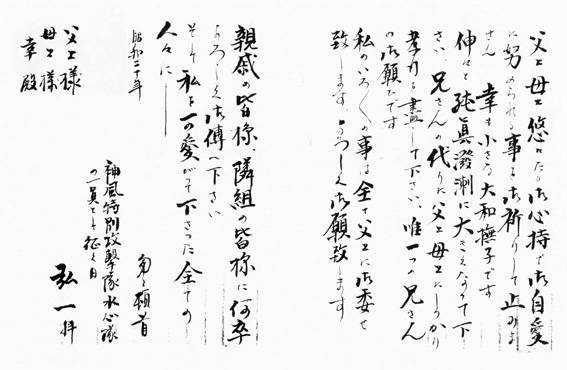 父上母上悠々たる御心持で御自愛
に努められる事を御祈りして止みま
せん 幸も小さき大和撫子です
伸々と純眞溌溂に大きくなつて下
さい、兄さんの代りに父上母上にしつかり
孝行を盡して下さい、唯一つの兄さん
の御願ひです
私のいろ〱の事は全て父上に御委せ
致します、よろしく御願致します
親戚の皆様、隣組の皆様に何卒
よろしく御傳へ下さい
そして私を可愛がつて下さつた全ての
人々に──
頓首
昭和二十年
神風特別攻撃隊水心隊
の一員として征く日
弘一拝
父上様
母上様
幸殿